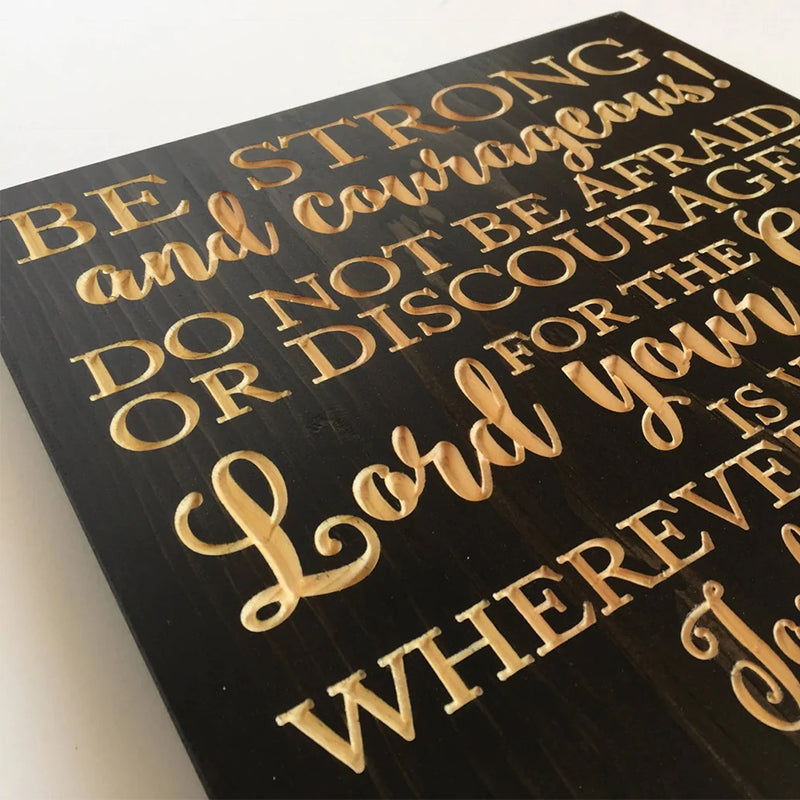 BE STRONG
and courageous!
DO NOT BE AFRAID
OR DISCOURAGE
FOR THE
Lord your
IS
WHEREVE